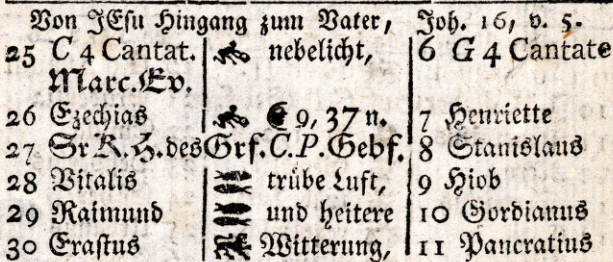 Von JEsu Hingang zum Vater, Joh. 16, v. 5.
25 C 4 Cantat. nebelicht, 6 G 4 Cantate
Marc. Ev.
26 Ezechias 9, 37 n. 7 Henriette
27 Sr K. H. des Grf. C. P. Gebf. 8 Stanislaus
28 Vitalis trübe Luft, 9 Hiob
29 Raimund und heitere 10 Gordianus
30 Erastus Witterung, 11 Pancratius